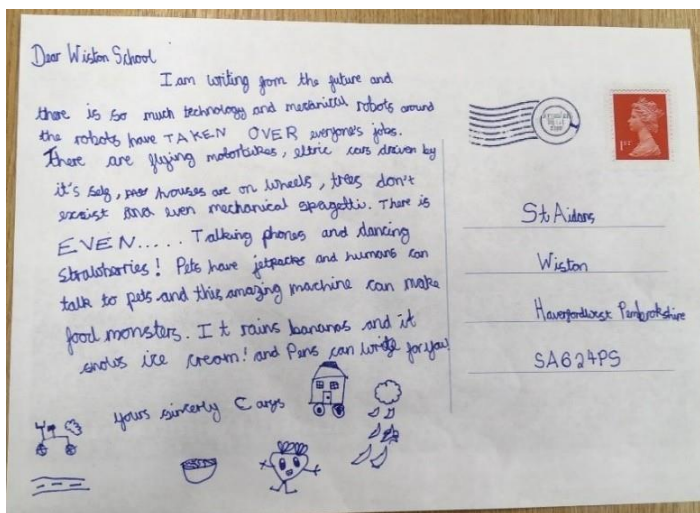 Dear Wiston School
I am writing from the future and
there is so much technology and mecanical robots around
the robots have TAKEN OVER everyone's jobs.
There are flying motorbikes, eltric cars driven by
it's self, houses are on wheels, trees don't
exsist and even mechanical spagetti. There is
EVEN..... Talking phones and dancing
strawberries! Pets have jetpacks and humans can
talk to pets and this amazing machine can make
food monsters. It rains bananas and it
snows ice cream! and Pens can write for you!
Yours sincerely Carys
1st
St Aidans
Wiston
Haverfordwest Pembrokshire
SA624PS